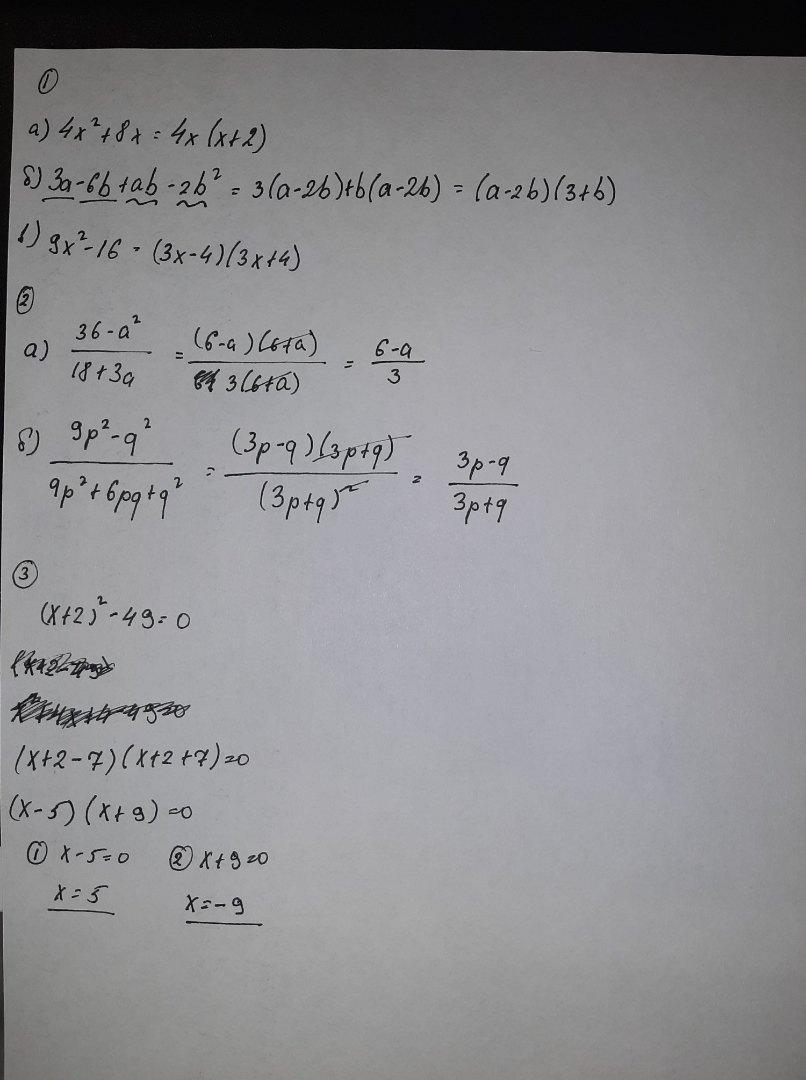 ①
а) 4x²+8x = 4x(x+2)
б) 3a-6b+ab-2b² = 3(a-2b)+b(a-2b) = (a-2b)(3+b)
в) 9x²-16 = (3x-4)(3x+4)
②
а) (36-a²)/(18+3a) = (6-a)(6+a)/3(6+a) = (6-a)/3
б) (9p²-q²)/(9p²+6pq+q²) = (3p-q)(3p+q)/(3p+q)² = (3p-q)/(3p+q)
③
(x+2)²-49=0
(x+2-7)(x+2+7)=0
(x-5)(x+9)=0
① x-5=0 ② x+9=0
x=5 x=-9